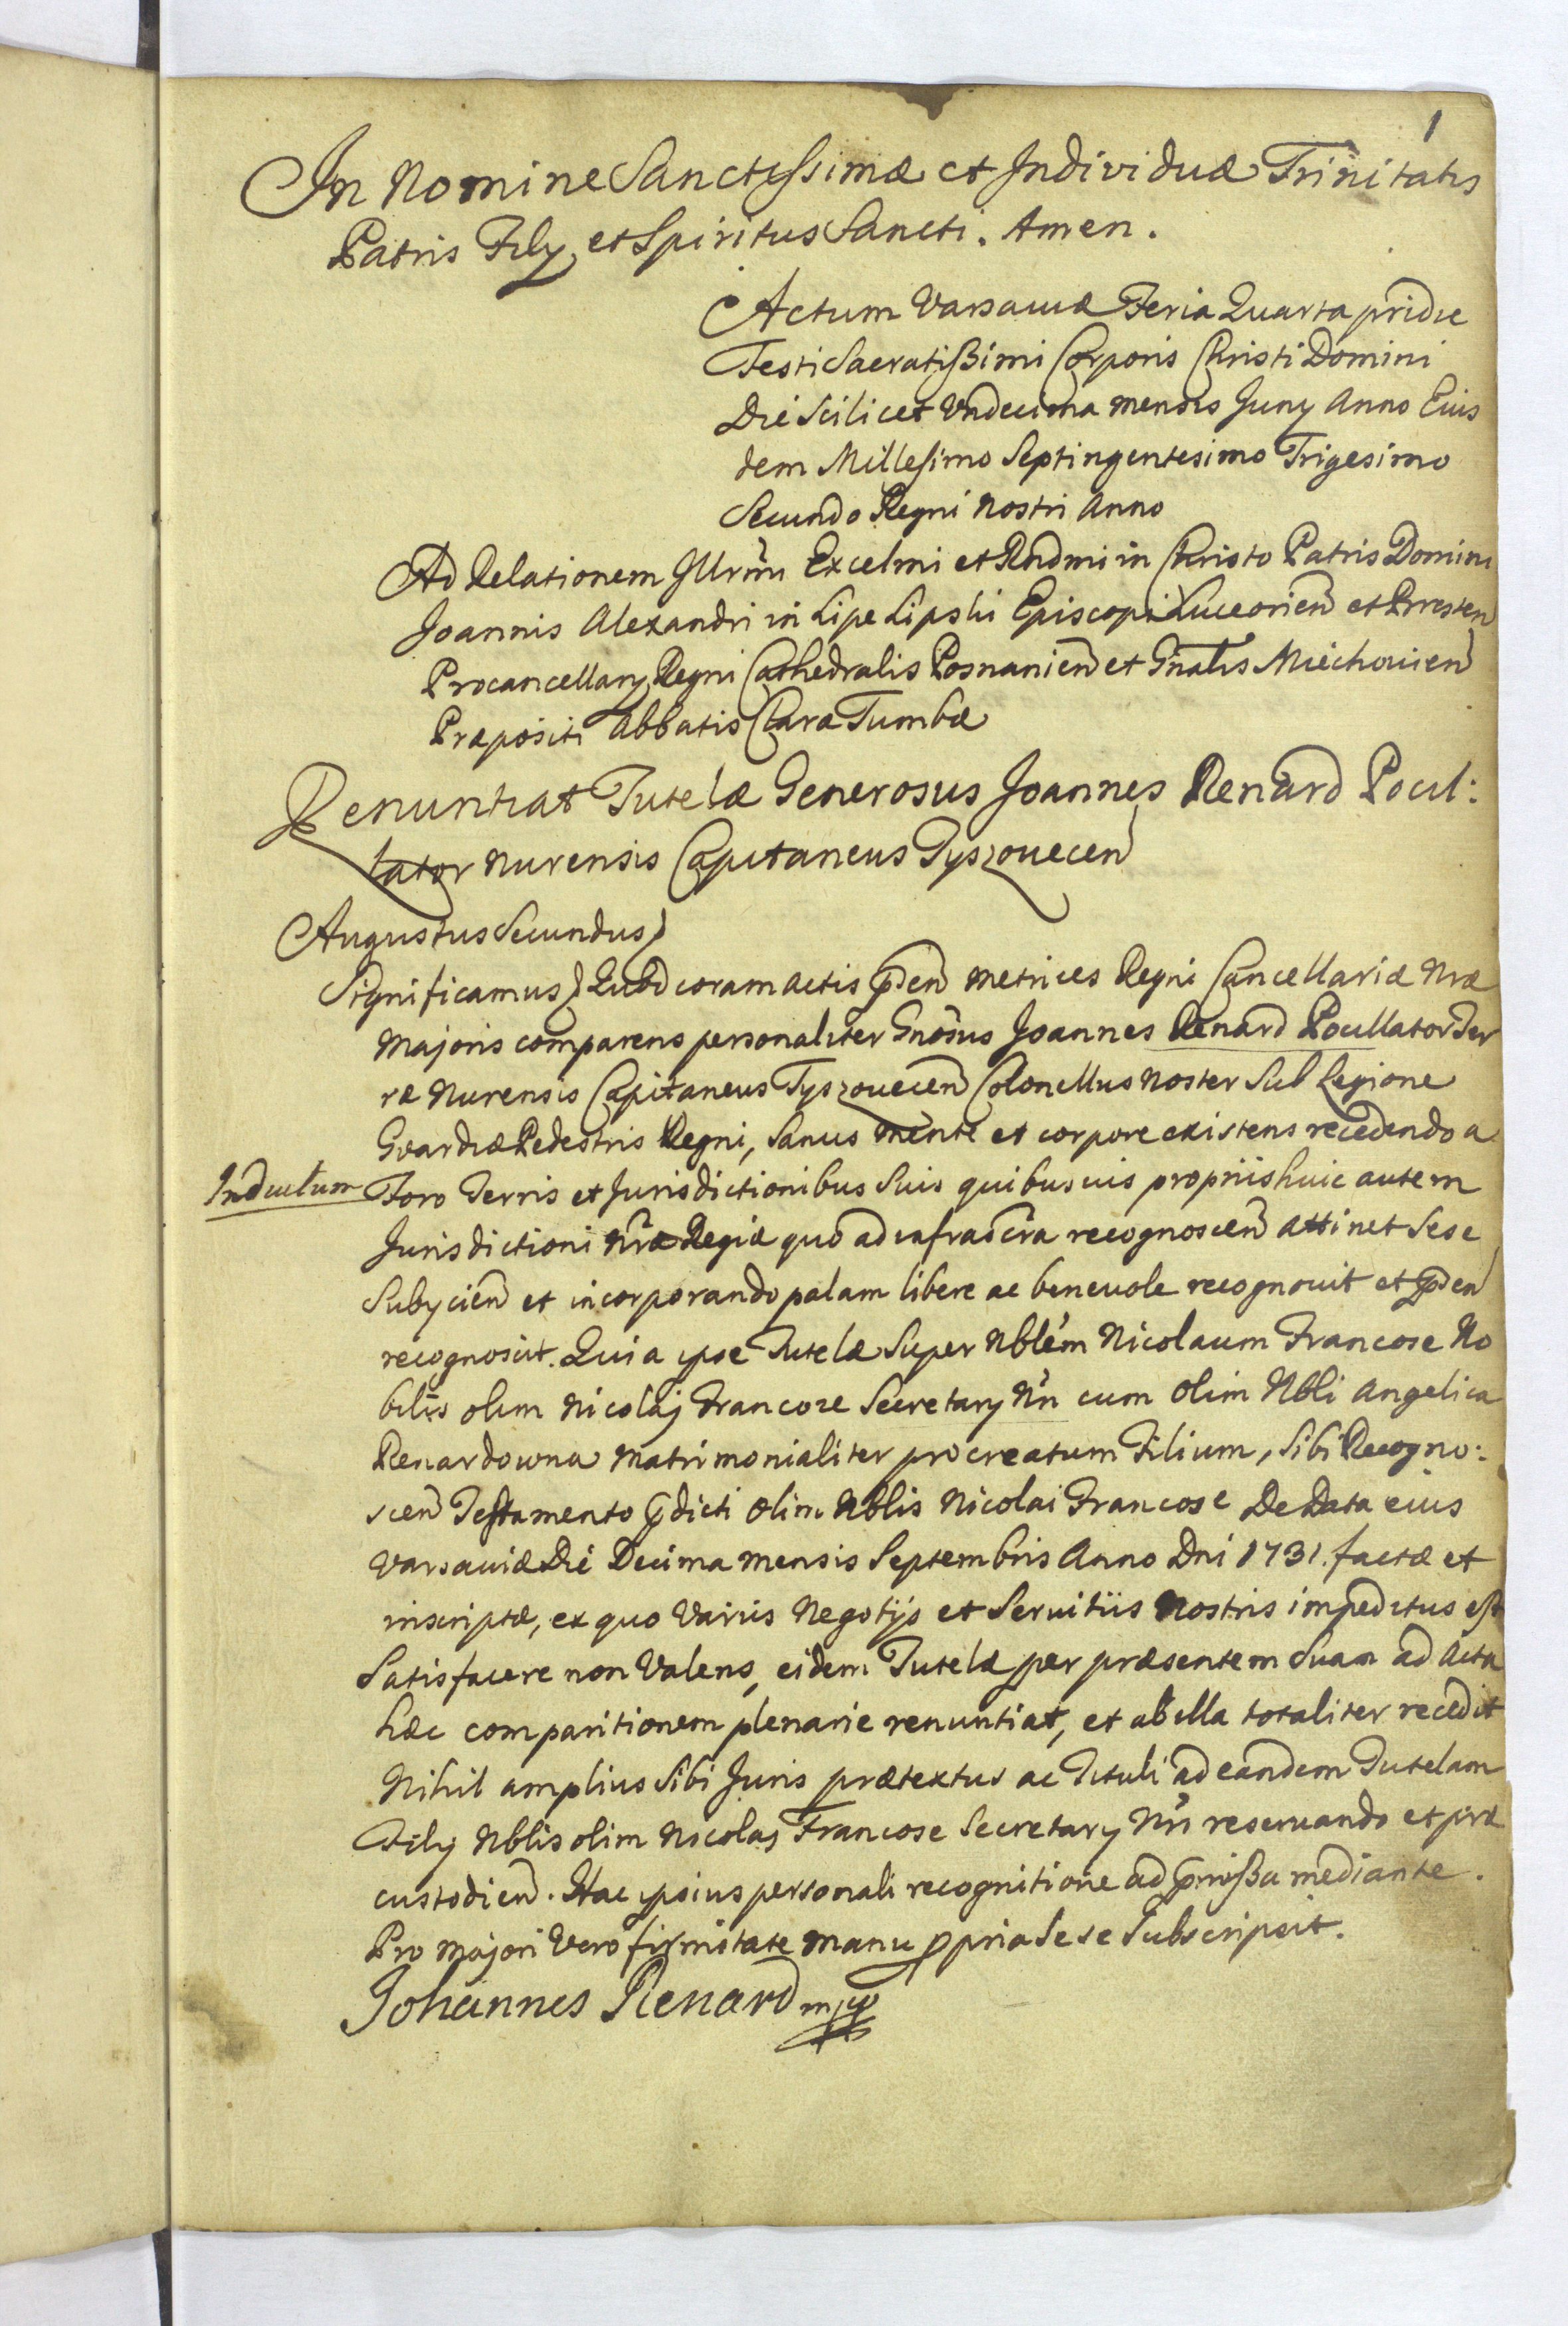 1
In Nomine Sanctissimæ et Individuæ Trinitatis
Patris Filij et Spiritus Sancti. Amen.
Actum Varsaviæ Feria Quarta pridie
Festi Sacratißimi Corporis Christi Domini
Die Scilicet Undecima mensis Juny Anno Eius
dem Millesimo Septingentesimo Trigesimo
Secundo Regni Nostri Anno
Ad Relationem Illrmi Excelmi et Rndmi in Christo Patris Domini
Joannis Alexandri in Lipe Lipski Episcopi Luceorien et Bresten
Procancellarij Regni Cathedralis Posnanien et Gnalis Miechovien
Præpositi Abbatis Claræ Tumbæ
Renuntiat Tutelæ Generosus Joannes Renard Pocil:
lator Nurensis Capitaneus Tyszouecen
Augustus Secundus
Significamus Quod coram actis pden metrices Regni Cancellariæ Nræ
Majoris comparens personaliter Gnosus Joannes Renard Pocillator Ter
ræ Nurensis Capitaneus Tyszouecen Colonellus noster Sub Legione
Gvardiæ Pedestris Regni, Sanus mente et corpore existens recedendo a
Inductum Foro Terris et Jurisdictionibus Suis quibusuis propriis huic autem
Jurisdictioni Nræ Regiæ quo ad infrascra recognoscen attinet Sese
Subycien et incorporando palam libere ac beneuole recognouit et pden
recognoscit. Quia ipse Tutelæ Super Nblem Nicolaum Francose No
bilis olim Nicolaj Francoze Secretary Nri cum olim Nbli Angelica
Renardowna Matrimonialiter procreatum Filium, Sibi Recogno:
scen Testamento pdicti olim Nblis Nicolai Francose De Data eius
Varsaviæ Die Decima mensis Septembris Anno Dni 1731. factæ et
inscriptæ, ex quo Variis Negotijs et Seruitiis Nostris impeditus est
Satisfacere non Valens, eidem Tutelæ per præsentem Suam ad Acta
hæc comparitionem plenarie renuntiat, et ab illa totaliter recedit
Nihil amplius Sibi Juris prætextus ac Tituli ad eandem Tutelam
Filij Nblis olim Nicolaj Francose Secretary Nri reseruando et præ
custodien. Hac ipsius personali recognitione ad pmißa mediante.
Pro majori Vero firmitate manu ppria Sese Subscripsit.
Johannes Renard mpp